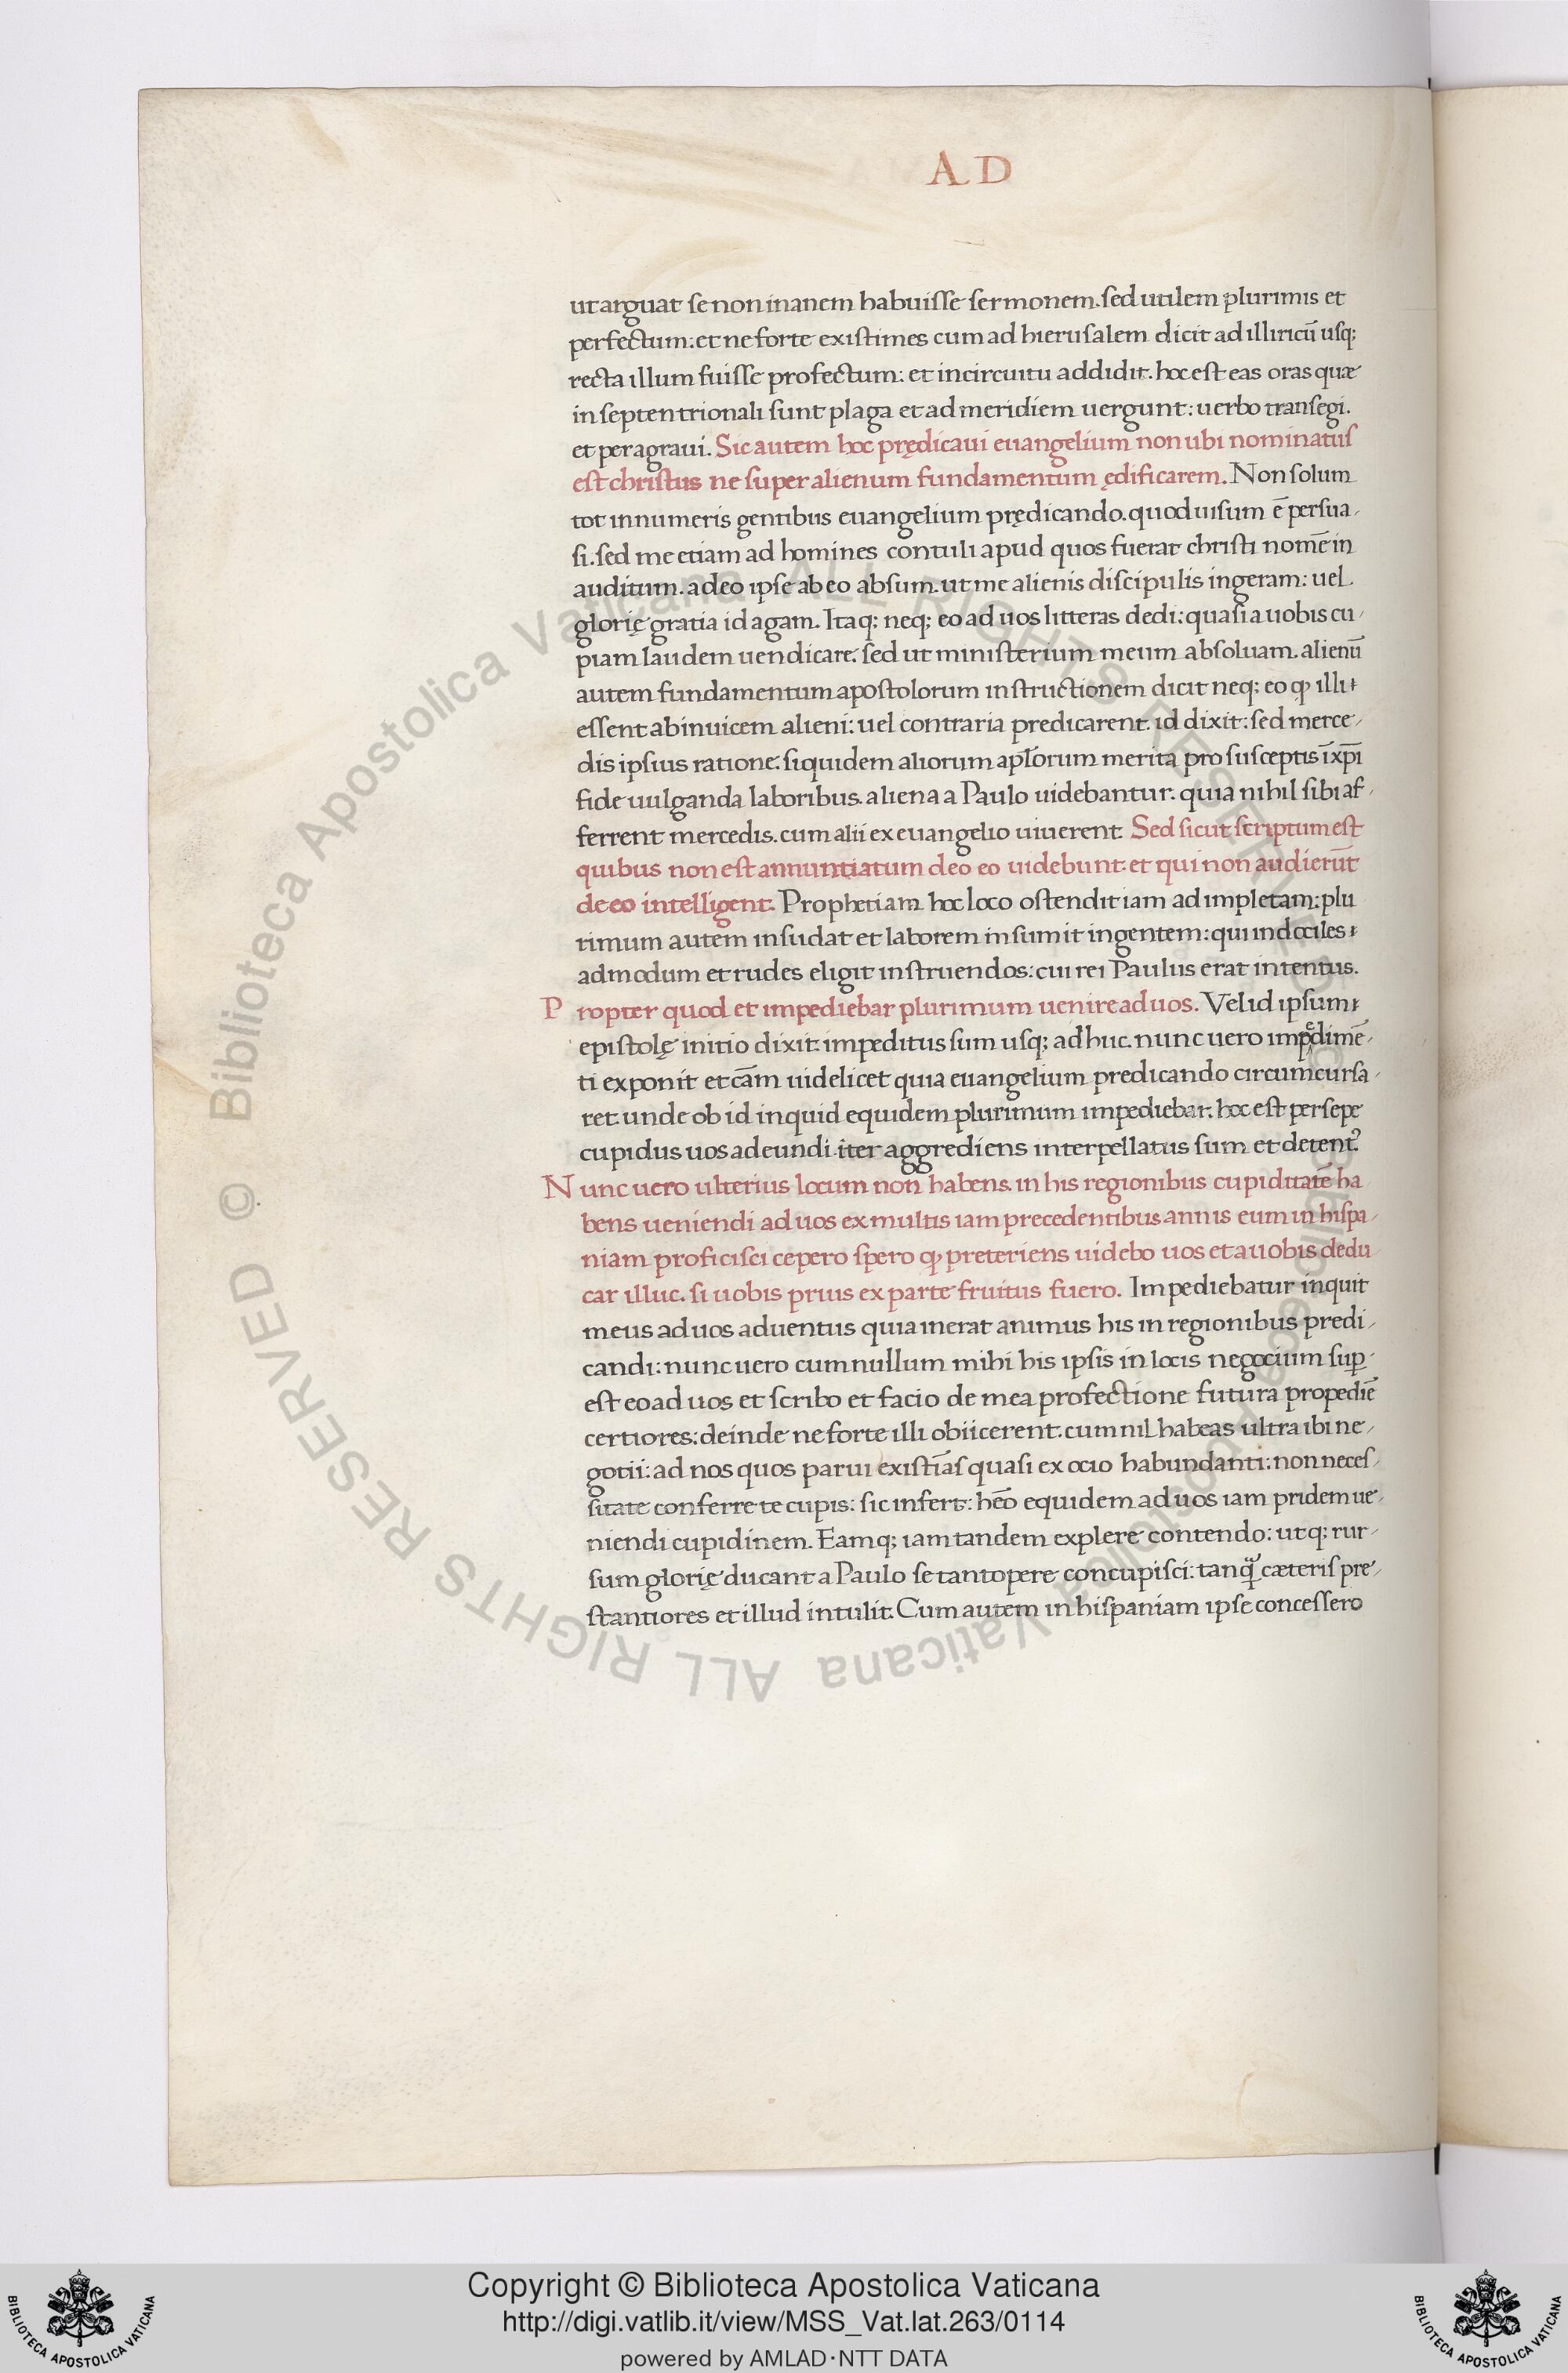 A D
ut arguat se non inanem habuisse sermonem. sed utilem plurimis et
perfectum: et ne forte existimes cum ad hierusalem dicit ad illiricū usq;
recta illum fuisse profectum: et in circuitu addidit. hoc est eas oras quæ
in septentrionali sunt plaga et ad meridiem uergunt: uerbo transegi.
et peragraui. Sic autem hoc prędicaui euangelium non ubi nominatus
est christus ne super alienum fundamentum ędificarem. Non solum
tot innumeris gentibus euangelium prędicando. quod uisum ē persua-
si. sed me etiam ad homines contuli apud quos fuerat christi nomē in
auditum. adeo ipse ab eo absum. ut me alienis discipulis ingeram: uel
glorię gratia id agam. Itaq; neq; eo ad uos litteras dedi: quasi a uobis cu-
piam laudem uendicare. sed ut ministerium meum absoluam. alienū
autem fundamentum apostolorum instructionem dicit neq; eo ꝙ illi
essent abinuicem alieni: uel contraria predicarent. id dixit: sed merce-
dis ipsius ratione. siquidem aliorum apl'orum merita pro susceptis ī xp̄i
fide uulganda laboribus. aliena a Paulo uidebantur. quia nihil sibi af-
ferrent mercedis. cum alii ex euangelio uiuerent. Sed sicut scriptum est
quibus non est annuntiatum deo eo uidebunt. et qui non audierūt
de eo intelligent. Prophetiam hoc loco ostendit iam adimpletam: plu
rimum autem insudat et laborem insumit ingentem: qui indociles
admodum et rudes eligit instruendos: cui rei Paulus erat intentus.
Propter quod et impediebar plurimum uenire ad uos. Vel id ipsum
epistolę initio dixit. impeditus sum usq; ad huc. nunc uero impedimē-
ti exponit et cām uidelicet quia euangelium predicando circumcursa-
ret. unde ob id inquid equidem plurimum impediebar. hoc est persepe
cupidus uos adeundi iter aggrediens interpellatus sum et detentꝰ.
Nunc uero ulterius locum non habens. in his regionibus cupiditatē ha
bens ueniendi ad uos ex multis iam precedentibus annis eum in hispa-
niam proficisci cepero spero ꝙ preteriens uidebo uos et a uobis dedu
car illuc. si uobis prius ex parte fruitus fuero. Impediebatur inquit
meus ad uos aduentus quia inerat animus his in regionibus predi-
candi: nunc uero cum nullum mihi his ipsis in locis negocium suꝑ-
est eo ad uos et scribo et facio de mea profectione futura propediē
certiores: deinde ne forte illi obiicerent. cum nil habeas ultra ibi ne-
gotii: ad nos quos parui existīas quasi ex ocio habundanti: non neces-
sitate conferre te cupis: sic infert: hēo equidem ad uos iam pridem ue-
niendi cupidinem. Eamq; iam tandem explere contendo: utq; rur-
sum glorię ducant a Paulo se tantopere concupisci: tanq̃ cæteris pre-
stantiores et illud intulit. Cum autem in hispaniam ipse concessero
© Biblioteca Apostolica Vaticana ALL RIGHTS RESERVED © Biblioteca Apostolica Vaticana ALL RIGHTS RESERVED
Copyright © Biblioteca Apostolica Vaticana
http://digi.vatlib.it/view/MSS_Vat.lat.263/0114
powered by AMLAD·NTT DATA
BIBLIOTECA APOSTOLICA VATICANA
BIBLIOTECA APOSTOLICA VATICANA